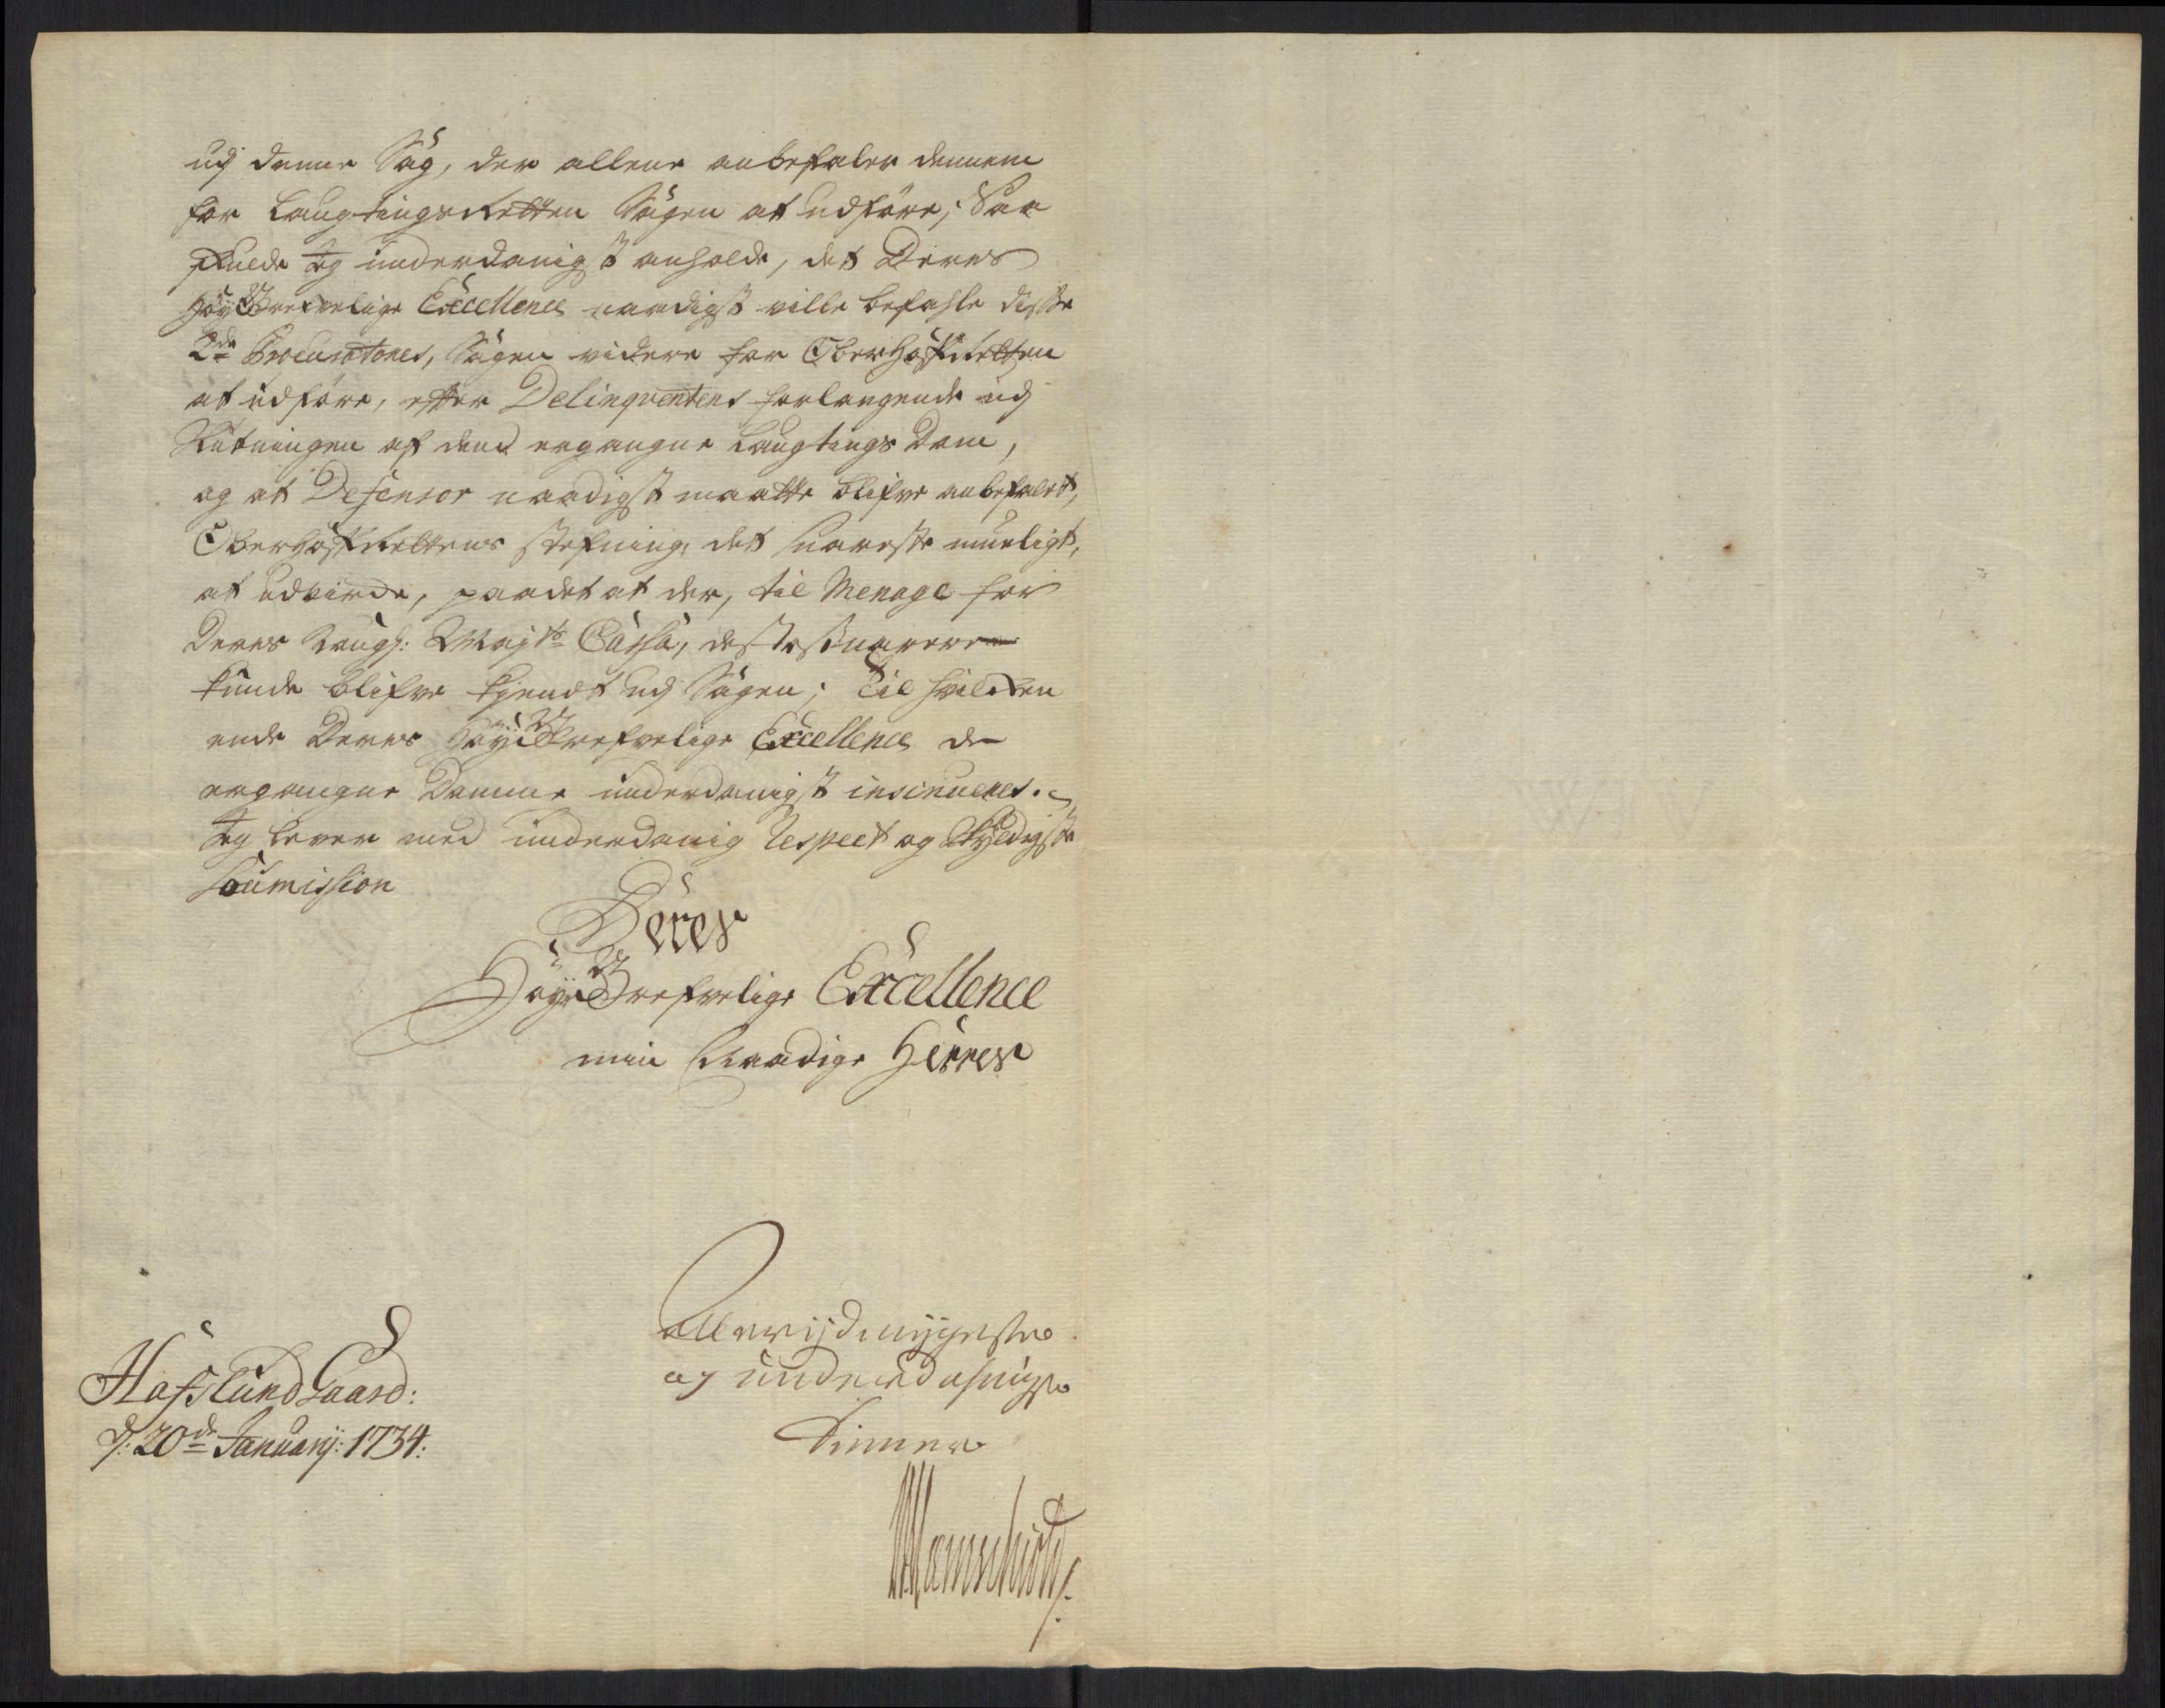 udj denne Sag, der allene anbefaler dennem
for LaugtingsRetten Sagen at udføre; Saa
skulde Jeg underdanigst anholde, det Deres
Høy Grefvelige Excellence naadigst ville befahle disse
2de Procuratores, Sagen videre for OberHofRetten
at udføre, efter Delinqventens forlangende udj
Slutningen af dend ergangne Laugtings Dom,
og at Defensor naadigst maatte blifve anbefalet,
OberHofRettens Stefning, det snareste mueligt,
at udvirde, paadet at der, til Menage for
Deres Kongl: Mayts Cassa, desto snarere
kunde blifve kjendt udj Sagen; Til hvilken
ende Deres HøyGrefvelige Excellence de
ergangne Domme underdanigst insinueres.
Jeg lever med underdanig Respect og skyldigste
Soumission
Deres
HøyGrefvelige Excellence
min Naadige Herres
Allerydmygeste
og underdahnigste
Tienner
Hafslund Gaard:
d: 20de Januarij: 1734.